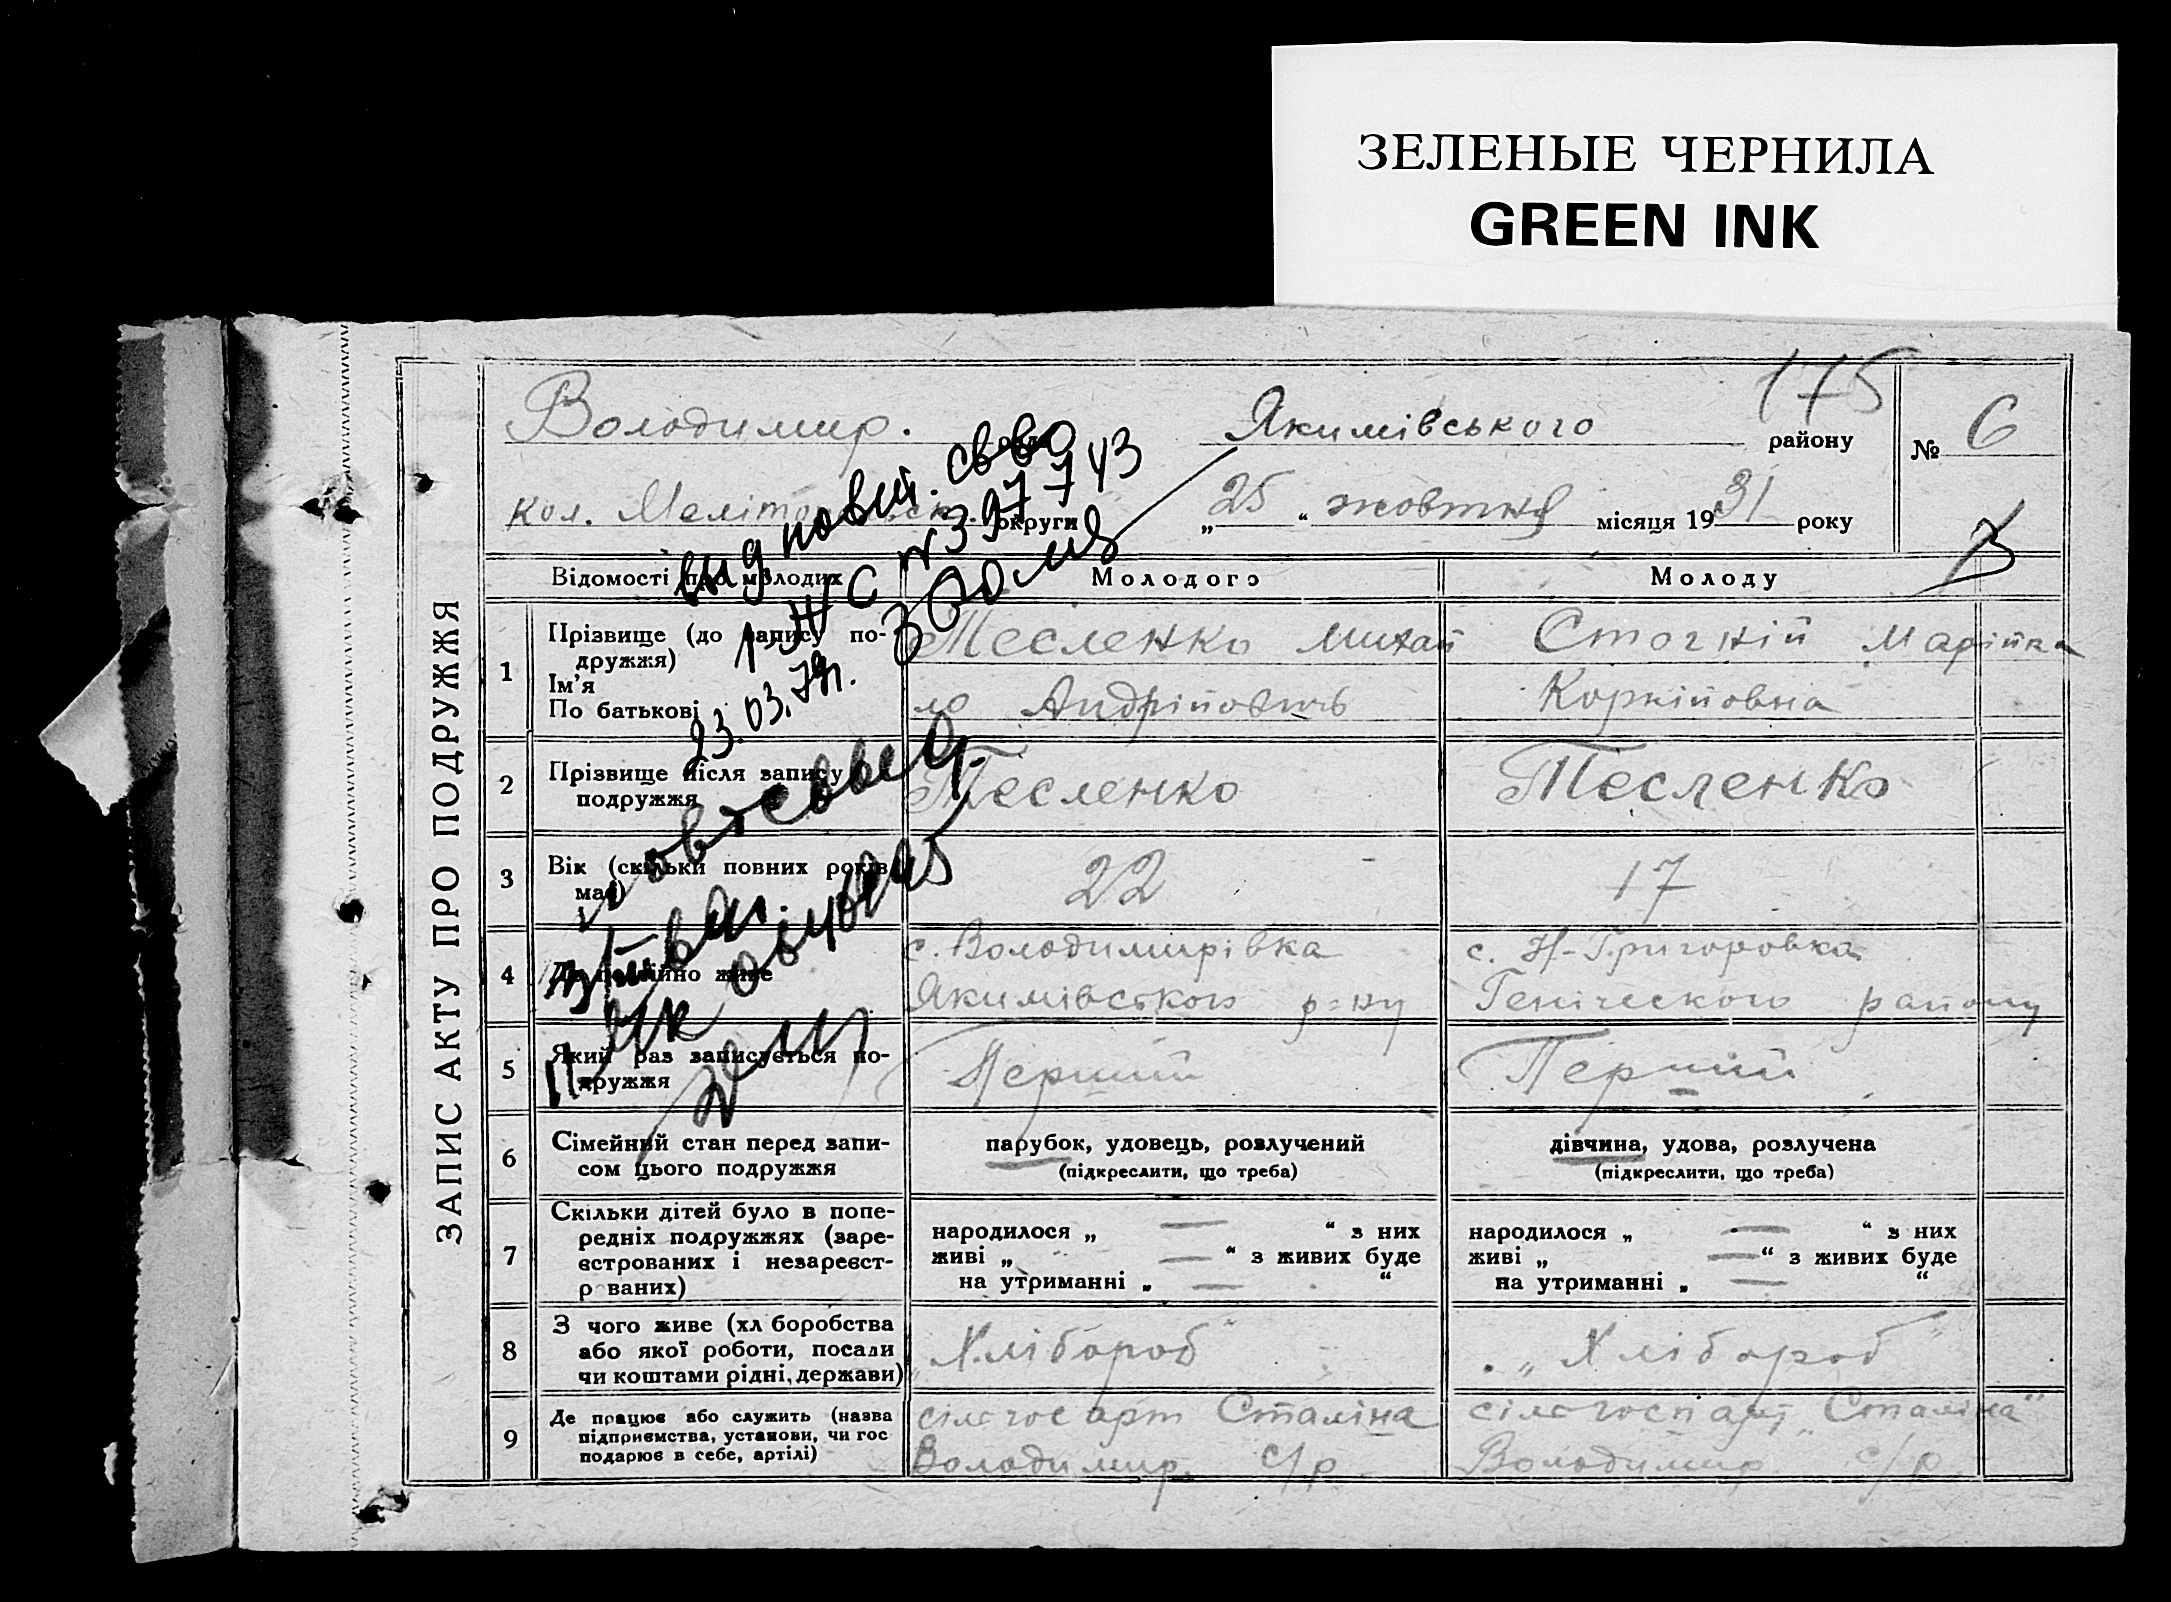 ЗЕЛЕНЫЕ ЧЕРНИЛА
GREEN INK
175
Володимир. Якимівського району № 6
кол. округи „25“ жовтня місяця 1931 року
вид. новий. св-во
I ЖС № 397743
23.03.79г.
ЗАПИС АКТУ ПРО ПОДРУЖЖЯ
Відомості про молодих Молодого Молоду
1 Прізвище (до запису подружжя) Ім'я По батькові
Тесленко Михай
ло Андрійовичь
Стогній Марійка
Корнійовна
2 Прізвище після запису
подружжя
Тесленко Тесленко
3 Вік (скільки повних років
має)
22 17
4 Де постійно живе
с. Володимирівка
Якимівського р-ну
с. Н-Григоровка
Генічеського району
5 Який раз записується по-
дружжя
Перший Перший
6 Сімейний стан перед запи-
сом цього подружжя
парубок, удовець, розлучений
(підкреслити, що треба)
дівчина, удова, розлучена
(підкреслити, що треба)
7 Скільки дітей було в попе-
редніх подружжях (заре-
єстрованих і незареєст-
р ваних)
народилося „ — “ з них
живі „ — “ з живих буде
на утриманні „ — “
народилося „ — “ з них
живі „ — “ з живих буде
на утриманні „ — “
8 З чого живе (хл боробства
або якої роботи, посади
чи коштами рідні, держави)
„Хлібороб“ „Хлібороб“
9 Де працює або служить (назва
підприємства, установи, чи гос
подарює в себе, артілі)
сільгос арт Сталіна
Володимир. с/р
сільгосп арт „Сталіна“
Володимир с/р